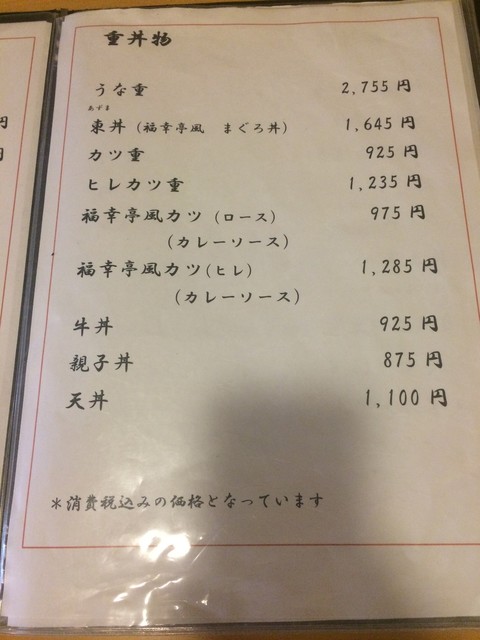 重丼物
うな重 2,755円
あずま
東丼(福幸亭風 まぐろ丼) 1,645円
カツ重 925円
ヒレカツ重 1,235円
福幸亭風カツ(ロース) 975円
(カレーソース)
福幸亭風カツ(ヒレ) 1,285円
(カレーソース)
牛丼 925円
親子丼 875円
天丼 1,100円
*消費税込みの価格となっています
円
円